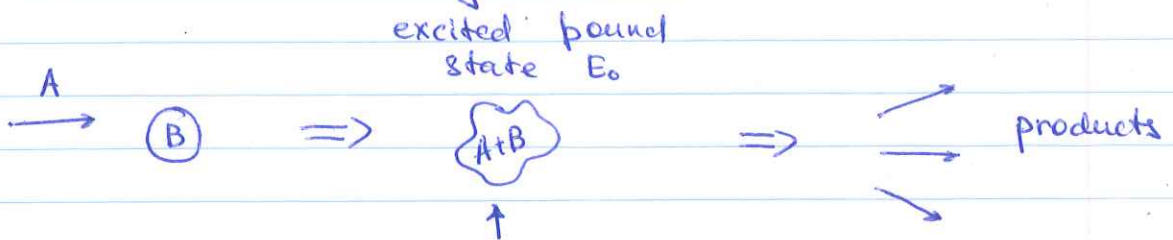 excited bound
state E₀
A
B
A+B
products